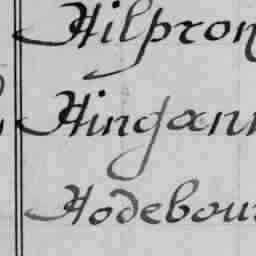 Hilpron
Hingann
Hodebour